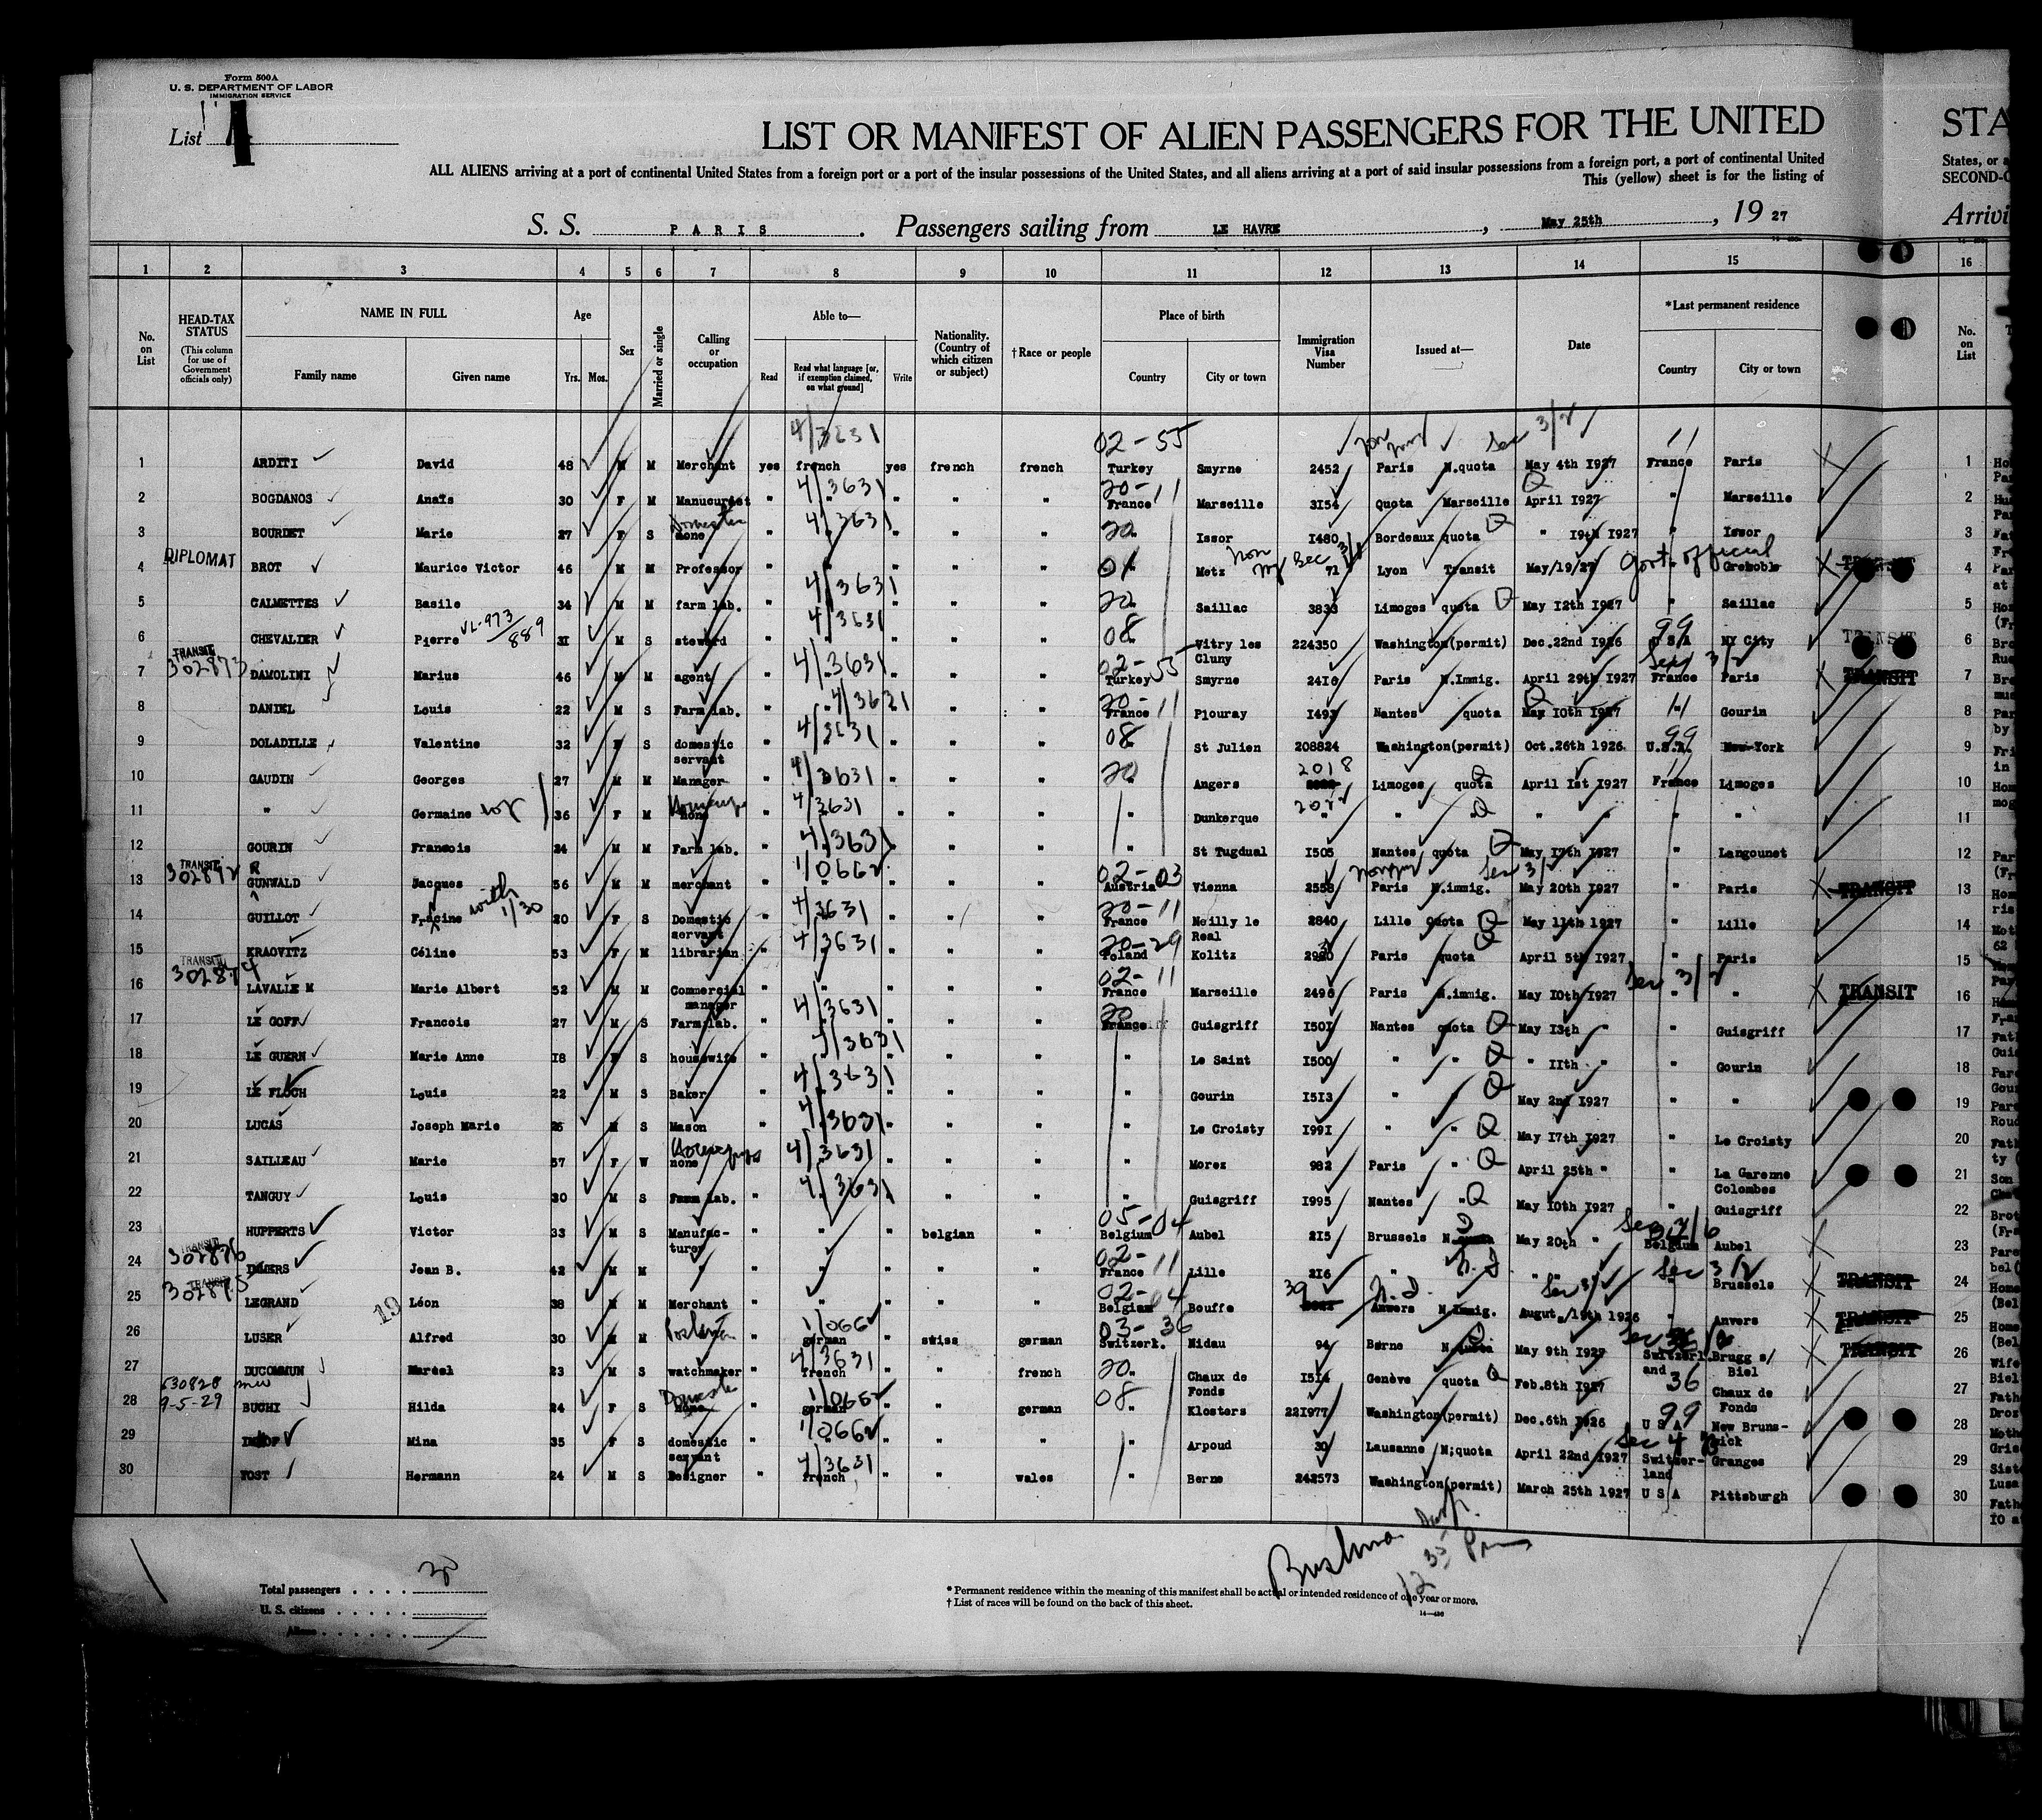 Form 500A
U. S. DEPARTMENT OF LABOR
IMMIGRATION SERVICE
List
LIST OR MANIFEST OF ALIEN PASSENGERS FOR THE UNITED
STA
ALL ALIENS arriving at a port of continental United States from a foreign port or a port of the insular possessions of the United States, and all aliens arriving at a port of said insular possessions from a foreign port, a port of continental United
States, or a
This (yellow) sheet is for the listing of
SECOND-C
S. S. PARIS. Passengers sailing from LE HAVRE, May 25th, 19 27
Arrivi
1 2 3 4 5 6 7 8 9 10 11 12 13 14 15 16
No. on List
HEAD-TAX STATUS (This column for use of Government officials only)
NAME IN FULL Family name Given name
Age Yrs. Mos.
Sex
Married or single
Calling or occupation
Able to— Read Read what language [or, if exemption claimed, on what ground] Write
Nationality. (Country of which citizen or subject)
†Race or people
Place of birth Country City or town
Immigration Visa Number
Issued at—
Date
*Last permanent residence Country City or town
No. on List
4/3631 02-55 Sec 3/2 11
1 ARDITI David 48 M M Merchant yes french yes french french Turkey Smyrne 2452 Paris N.quota May 4th 1927 France Paris 1
4/3631 20-11 Q
2 BOGDANOS Anaïs 30 F M Manucurist " " " " " France Marseille 3154 Quota Marseille April 1927 " Marseille 2
Domestic 4/3631 20 Q
3 BOURDET Marie 27 F S none " " " " " " Issor 1480 Bordeaux quota " 19th 1927 " Issor 3
DIPLOMAT 01 Non Sec 3/1 Govt. official
4 BROT Maurice Victor 46 M M Professor " " " " " " Metz 71 Lyon Transit May/19/27 " Grenoble TRANSIT 4
4/3631 20 Q
5 CALMETTES Basile 34 M M farm lab. " " " " " " Saillac 3833 Limoges quota May 12th 1927 " Saillac 5
VL-973/889 4/3631 08 99
6 CHEVALIER Pierre 31 M S steward " " " " " " Vitry les Cluny 224350 Washington(permit) Dec.22nd 1926 U S A NY City TRANSIT 6
TRANSIT 302873 4/3631 02-55 Sec 3/2
7 DAMOLINI Marius 46 M M agent " " " " " Turkey Smyrne 2416 Paris N.Immig. April 29th 1927 France Paris TRANSIT 7
4/3621 20-11 Q 11
8 DANIEL Louis 22 M S Farm lab. " " " " " France Plouray 1493 Nantes quota May 10th 1927 " Gourin 8
4/3631 08 99
9 DOLADILLE Valentine 32 F S domestic servant " " " " " " St Julien 208824 Washington(permit) Oct.26th 1926 U.S.A. New-York 9
4/3631 20 2018 Q 11
10 GAUDIN Georges 27 M M Manager " " " " " " Angers Limoges quota April 1st 1927 France Limoges 10
4/3631
11 " Germaine 36 F M none " " " " " " Dunkerque " " " " " " 11
4/3631 Q
12 GOURIN Francois 24 M M Farm lab. " " " " " " St Tugdual 1505 Nantes quota May 17th 1927 " Langounet 12
TRANSIT 302872 R 1/0662 02-03 Sec 3/2
13 GUNWALD Jacques 56 M M merchant " " " " " Austria Vienna 2558 Paris N.immig. May 20th 1927 " Paris TRANSIT 13
with 1/30 4/3631 20-11 Q
14 GUILLOT Francine 20 F S Domestic servant " " " " " France Neilly le Real 2840 Lille Quota May 11th 1927 " Lille 14
4/3631 20-29 Q
15 KRAOVITZ Céline 53 F M librarian " " " " " Poland Kolitz Paris quota April 5th 1927 " Paris 15
TRANSIT 302874 02-11 Sec 3/2
16 LAVALLE M Marie Albert 52 M M Commercial manager " " " " " France Marseille 2496 Paris N.immig. May 10th 1927 " " TRANSIT 16
4/3631 20 Q
17 LE GOFF Francois 27 M S Farm lab. " " " " " France Guisgriff 1501 Nantes quota May 13th " " Guisgriff 17
4/3631 Q
18 LE GUERN Marie Anne 18 F S housewife " " " " " " Le Saint 1500 " " " 11th " " Gourin 18
4/3631 Q
19 LE FLOCH Louis 22 M S Baker " " " " " " Gourin 1513 " " May 2nd 1927 " " 19
4/3631 Q
20 LUCAS Joseph Marie 26 M S Mason " " " " " " Le Croisty 1991 " " May 17th 1927 " Le Croisty 20
4/3631 Q
21 SAILLEAU Marie 57 F W none " " " " " " Morez 982 Paris " April 25th " " La Garenne Colombes 21
4/3631 Q
22 TANGUY Louis 30 M S Farm lab. " " " " " " Guisgriff 1995 Nantes " May 10th 1927 " Guisgriff 22
05-04 Sec 3/6
23 HUPPERTS Victor 33 M S Manufac-turer " " " belgian " Belgium Aubel 215 Brussels May 20th " Belgium Aubel 23
TRANSIT 302876 02-11 Sec 3/2
24 Jean B. 42 M M " " " " " " France Lille 216 " " " " Brussels TRANSIT 24
TRANSIT 302875 02-04 39 Sec 3/2
25 LEGRAND Léon 38 M M Merchant " " " " " Belgium Bouffe Anvers N.Immig. Augut./19th 1926 " Anvers TRANSIT 25
19 1/0662 03-36
26 LUSER Alfred 30 M M " german " swiss german Switzerk. Nidau 94 Berne May 9th 1927 Switzerl.and Brugg s/ Biel TRANSIT 26
4/3631 20 Q 36
27 DUCOMMUN Marcel 23 M S watchmaker " french " " french " Chaux de Fonds 1514 Genève quota Feb.8th 1927 Chaux de Fonds 27
630828 9-5-29 Domestic 1/0662 08 99
28 BUCHI Hilda 24 F S none " german " " german " Klosters 221977 Washington(permit) Dec.6th 1926 U S A New Bruns-wick 28
1/0662 Sec 4
29 Mina 35 F S domestic servant " " " " " " Arpoud 30 Lausanne N;quota April 22nd 1927 Switzer-land Granges 29
4/3631
30 YOST Hermann 24 M S Designer " french " " wales " Berne 242573 Washington(permit) March 25th 1927 U S A Pittsburgh 30
12 35 Pm
Total passengers . . . . 30
U. S. citizens . . . . .
Aliens . . . . . .
* Permanent residence within the meaning of this manifest shall be actual or intended residence of one year or more.
† List of races will be found on the back of this sheet.
14—436